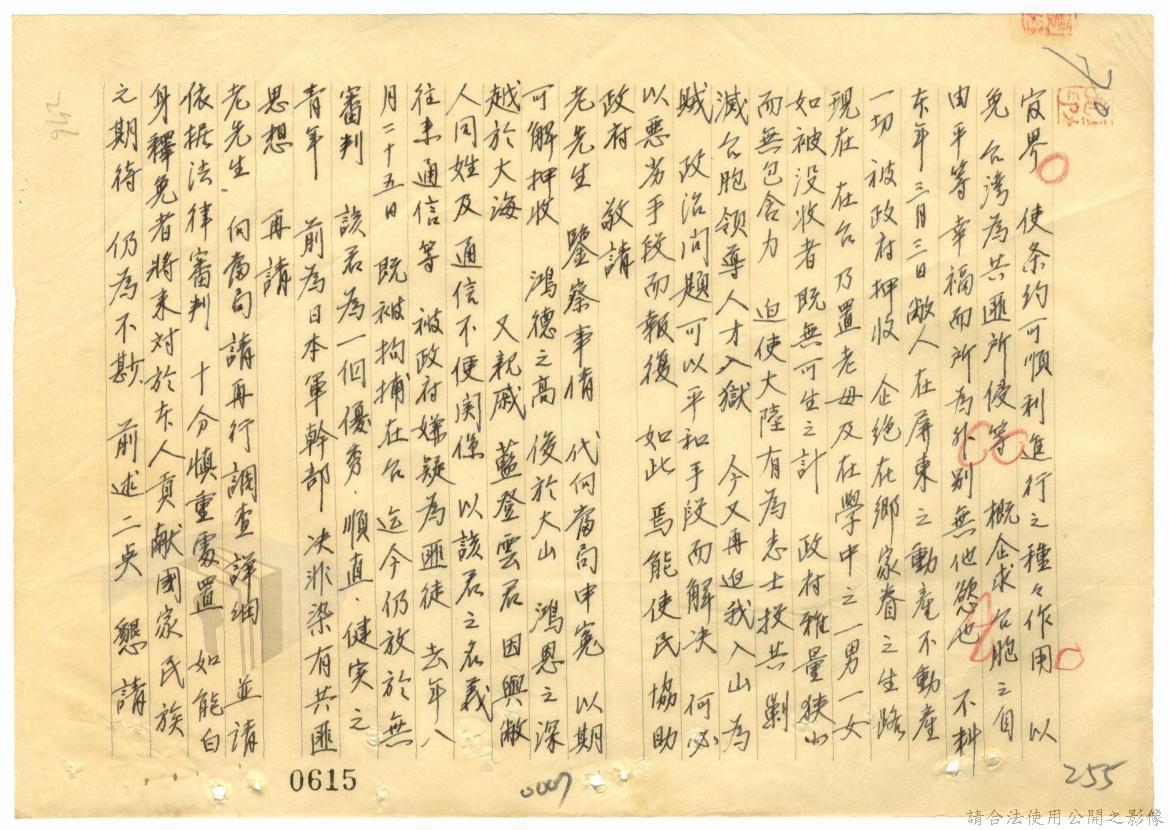 官界 使条約可順利進行之種々作用 以
免台湾為共匪所侵等 概企求台胞之自
由平等幸福而所為外別無他慾也 不料
本年三月三日敝人在屏東之動產不動產
一切 被政府押收 企絶在鄉家眷之生路
現在 在台乃置老母及在學中之一男一女
如被没收者既無可生之計 政村雅量狹小
而無包含力 迫使大陸有為志士投共 剿
滅台胞領導人才入獄 今又再迫我入山為
賊 政治问題可以平和手段而解决 何必
以惡劣手段而報復 如此焉能使民協助
政府 敬請
老先生 鑒察事情 代向當局申寃 以期
可解押收 鴻德之高 俊於大山 鴻恩之深
越於大海 又親戚 藍登雲君因與敝
人同姓及 通信不便関係 以該君之名義
往来通信等 被政府嫌疑為匪徒 去年八
月二十五日 既被拘捕在台 迄今仍放於無
審判 該君為一個優秀．順直．健实之
青年 前為日本軍幹部 决非染有共匪
思想 再請
老先生 向當局請再行調查詳細 並請
依据法律審判 十分慎重處置 如能白
身釋免者將来对於本人貢献國家民族
之期待 仍為不尠 前述二点 懇請
70
255
246
0615
0007
請合法使用公開之影像